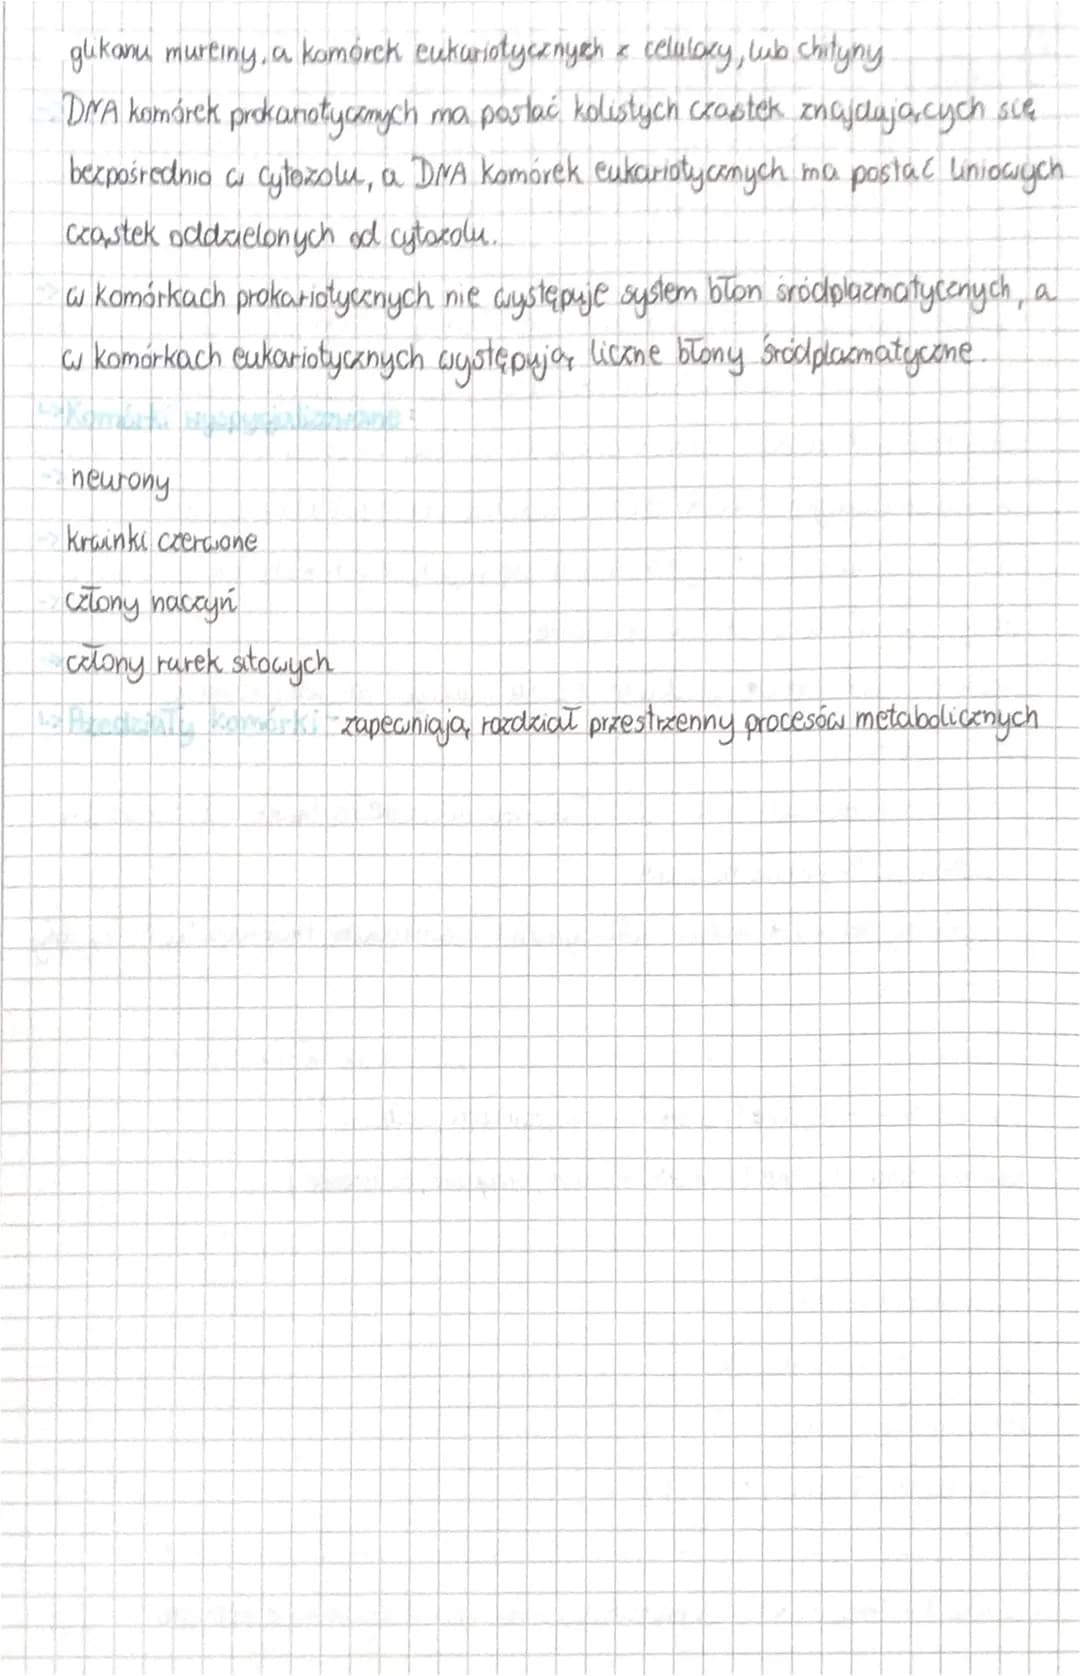 glikanu mureiny, a komórek eukariotycznych z celulozy, lub chityny
DNA komórek prokariotycznych ma postać kolistych cząstek znajdujących się
bezpośrednio w cytozolu, a DNA komórek eukariotycznych ma postać liniowych
cząstek oddzielonych od cytozolu.
w komórkach prokariotycznych nie występuje system błon śródplazmatycznych, a
w komórkach eukariotycznych występują liczne błony śródplazmatyczne.
↳ Komórki wyspecjalizowane:
→ neurony
→ krwinki czerwone
→ człony naczyń
→ człony rurek sitowych
↳ Przedziały komórki - zapewniają rozdział przestrzenny procesów metabolicznych